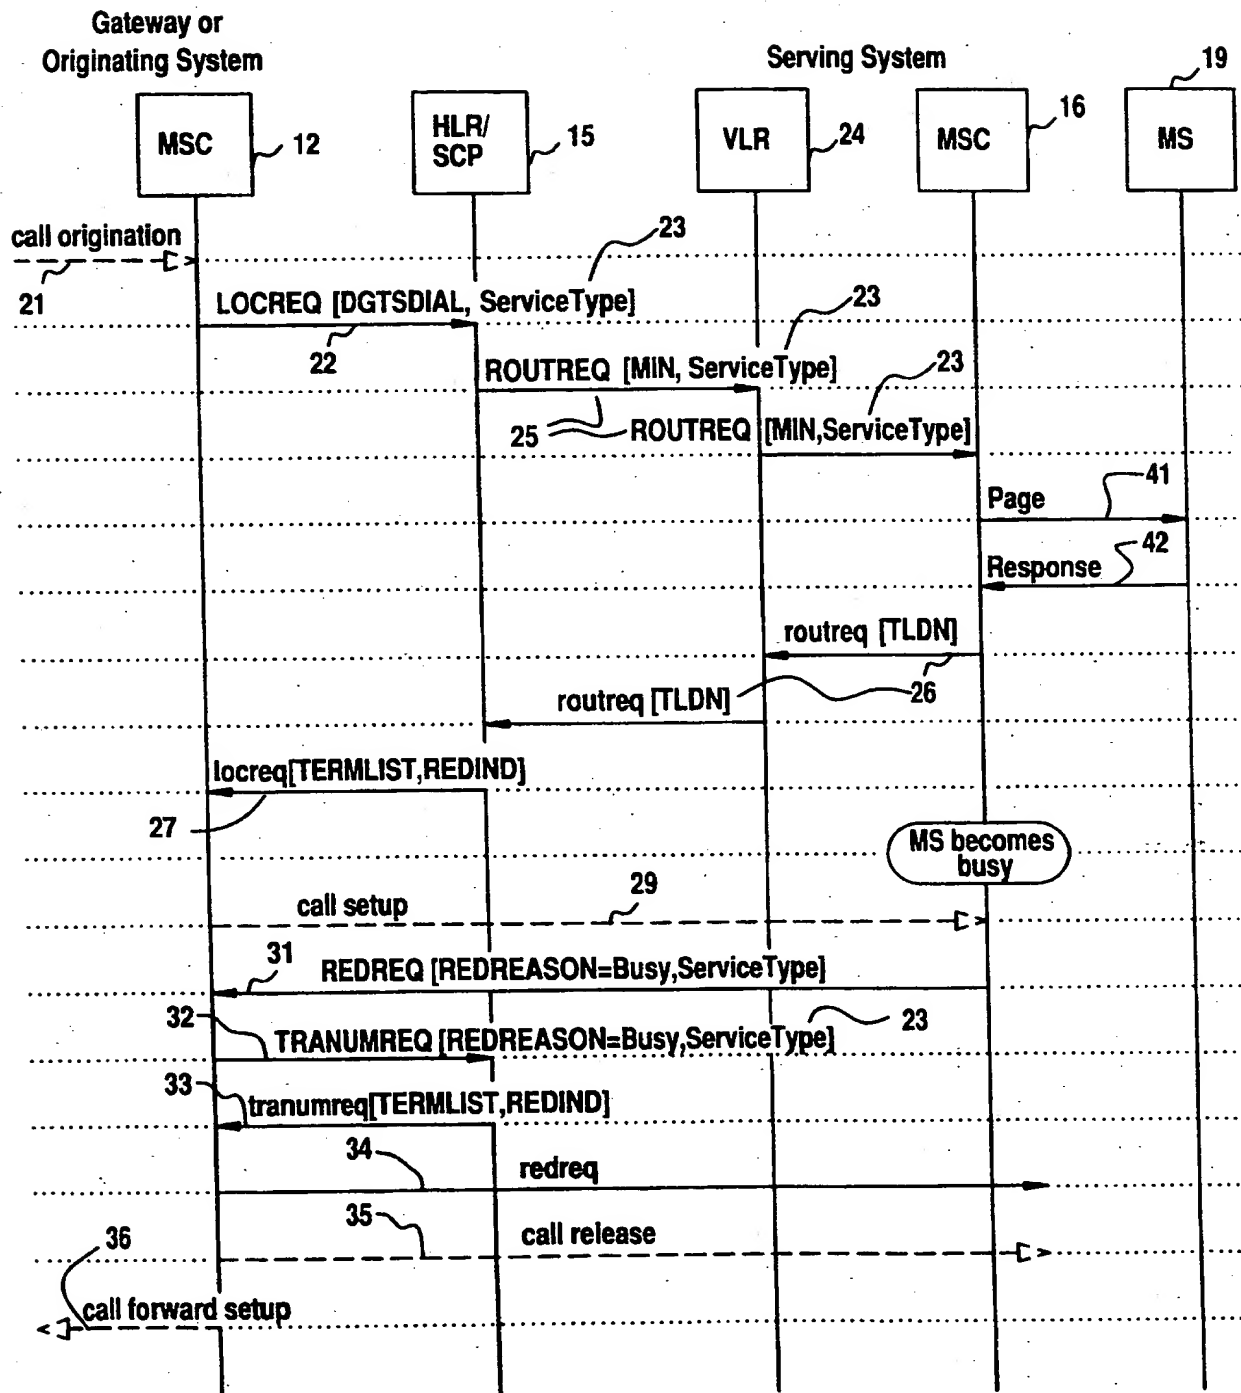 Gateway or
Originating System
Serving System
19
MSC
12
HLR/
SCP
15
VLR
24
MSC
16
MS
call origination
21
23
LOCREQ [DGTSDIAL, ServiceType]
22
23
ROUTREQ [MIN, ServiceType]
23
25
ROUTREQ [MIN,ServiceType]
Page
41
Response
42
routreq [TLDN]
26
routreq [TLDN]
locreq[TERMLIST,REDIND]
27
MS becomes
busy
call setup
29
31
REDREQ [REDREASON=Busy,ServiceType]
32
23
TRANUMREQ [REDREASON=Busy,ServiceType]
33
tranumreq[TERMLIST,REDIND]
34
redreq
35
call release
36
call forward setup